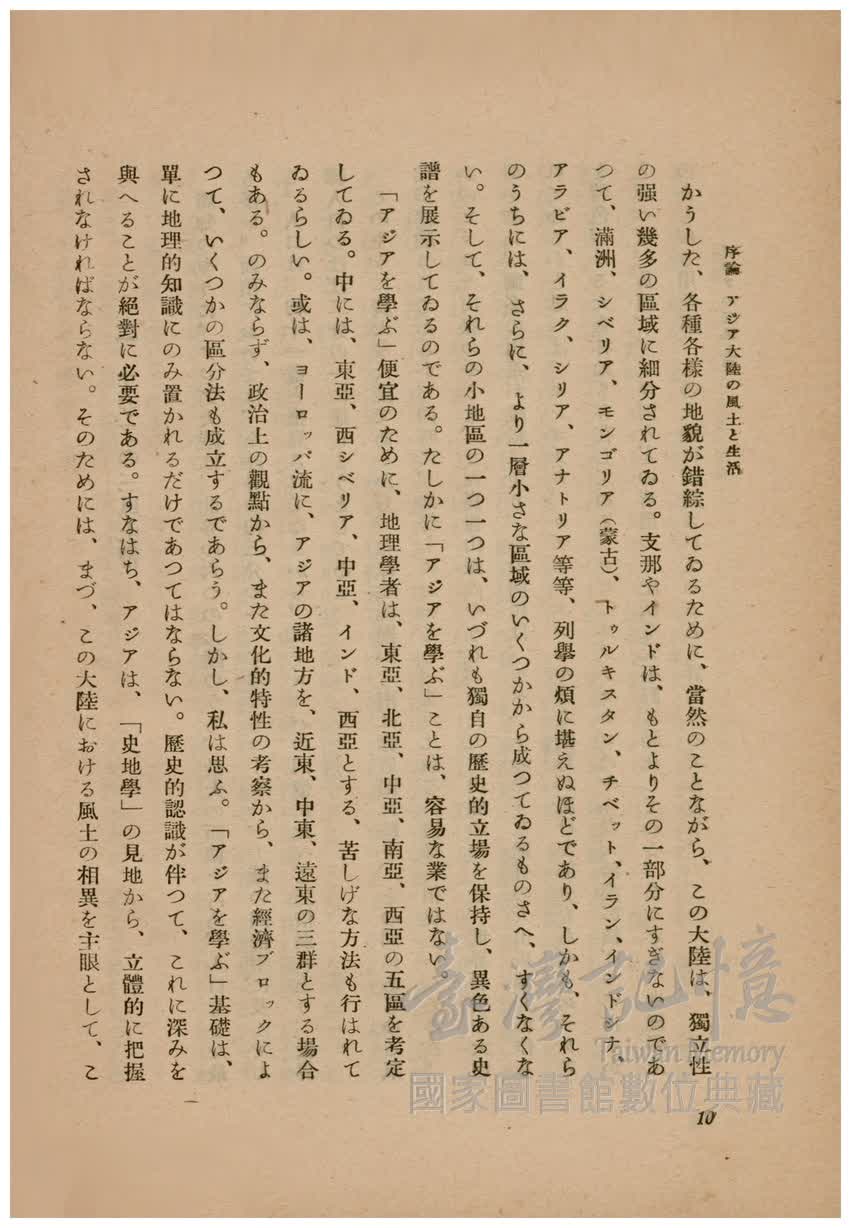 序論　アジア大陸の風土と生活
かうした、各種各様の地貌が錯綜してゐるために、當然のことながら、この大陸は、獨立性
の强い幾多の區域に細分されてゐる。支那やインドは、もとよりその一部分にすぎないのであ
つて、滿洲、シベリア、モンゴリア(蒙古)、トゥルキスタン、チベット、イラン、インドシナ、
アラビア、イラク、シリア、アナトリア等等、列擧の煩に堪えぬほどであり、しかも、それら
のうちには、さらに、より一層小さな區域のいくつかから成つてゐるものさへ、すくなくな
い。そして、それらの小地區の一つ一つは、いづれも獨自の歷史的立場を保持し、異色ある史
譜を展示してゐるのである。たしかに「アジアを學ぶ」ことは、容易な業ではない。
「アジアを學ぶ」便宜のために、地理學者は、東亞、北亞、中亞、南亞、西亞の五區を考定
してゐる。中には、東亞、西シベリア、中亞、インド、西亞とする、苦しげな方法も行はれて
ゐるらしい。或は、ヨーロッパ流に、アジアの諸地方を、近東、中東、遠東の三群とする場合
もある。のみならず、政治上の觀點から、また文化的特性の考察から、また經濟ブロックによ
つて、いくつかの區分法も成立するであらう。しかし、私は思ふ。「アジアを學ぶ」基礎は、
單に地理的知識にのみ置かれるだけであつてはならない。歷史的認識が伴つて、これに深みを
與へることが絕對に必要である。すなはち、アジアは、「史地學」の見地から、立體的に把握
されなければならない。そのためには、まづ、この大陸における風土の相異を主眼として、こ
10
臺灣記憶
Taiwan Memory
國家圖書館數位典藏